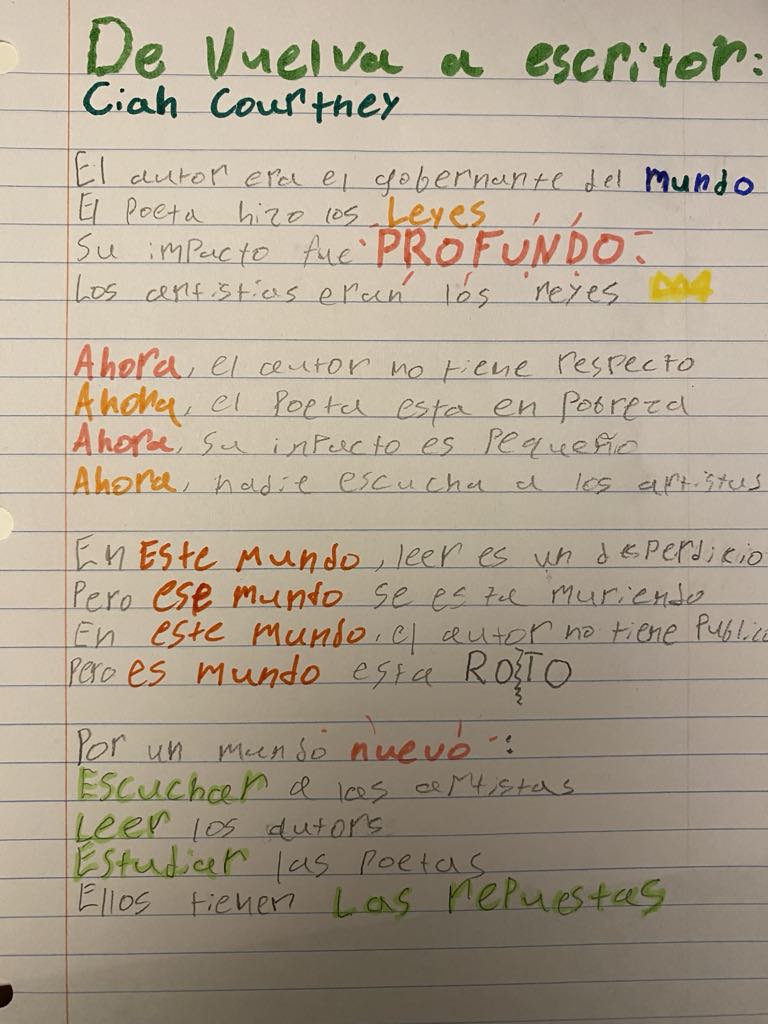 De Vuelva a escritor:
Ciah Courtney
El autor era el gobernante del Mundo
El Poeta hizo los Leyes
Su impacto fue PROFUNDO.
Los artistias eran los reyes
Ahora, el autor no tiene respecto
Ahora, el Poeta esta en pobreza
Ahora, su inpacto es pequeño
Ahora, nadie escucha a los artistas
En Este mundo, leer es un desperdicio
Pero ese mundo se esta muriendo
En este mundo, el autor no tiene Public
Pero es mundo esta ROTO
Por un mundo nuevo:
Escuchar a los artistas
Leer los autors
Estudiar las poetas
Ellos tienen Las repuestas